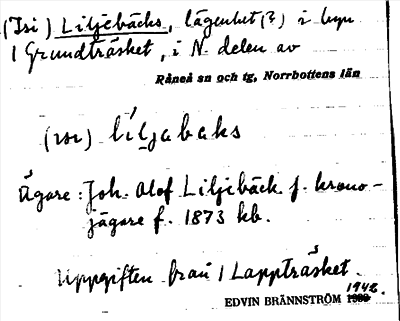 (Isi) Liljebäcks, lägenhet(?) i byn
1 Grundträsket, i N. delen av
Råneå sn och tg, Norrbottens län
(isi) liljabaks
Ägare: Joh. Olof Liljebäck f. krono-
jägare f. 1873 kb.
Uppgiften från 1 Lappträsket.
1948.
EDVIN BRÄNNSTRÖM